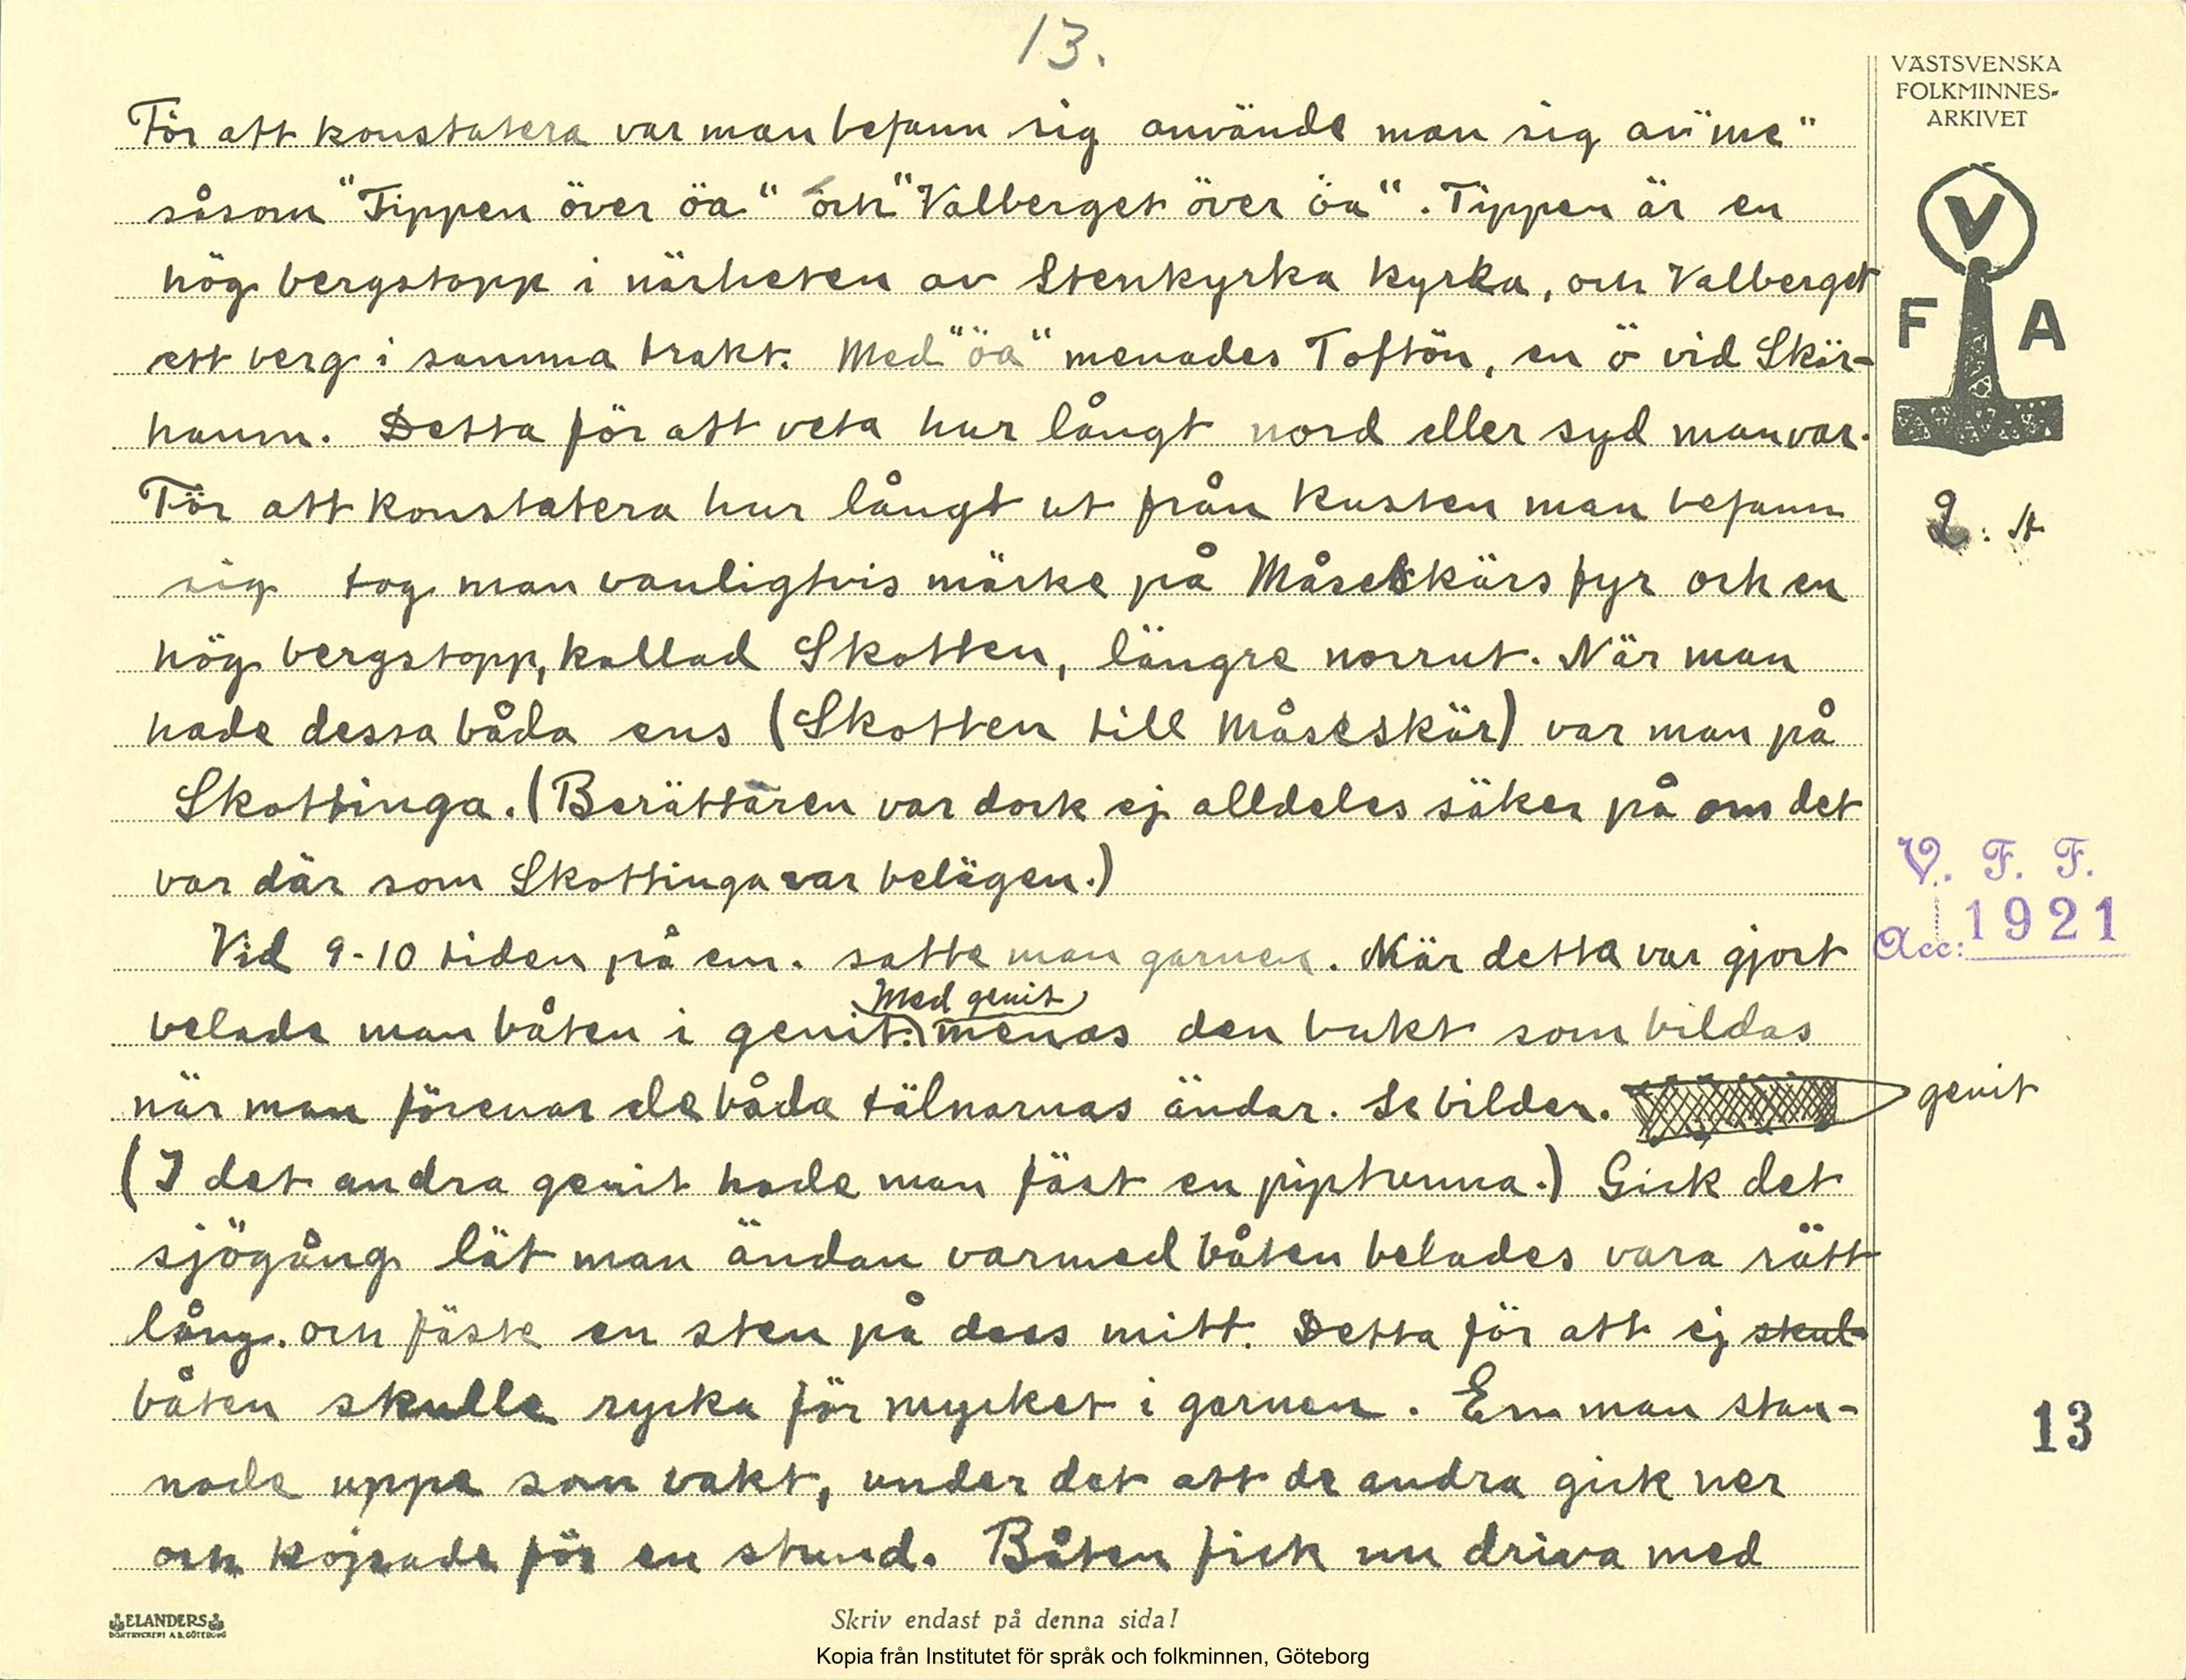 13.
VÄSTSVENSKA
FOLKMINNES-
ARKIVET
V
F A
För att konstatera var man befann sig använde man sig av "me"
såsom "Tippen över öa" och "Valberget över öa". Tippen är en
hög bergstopp i närheten av Stenkyrka kyrka, och Valberget
ett berg i samma trakt. Med "öa" menades Toftön, en ö vid Skär-
hamn. Detta för att veta hur långt nord eller syd man var.
För att konstatera hur långt ut från kusten man befann
sig tog man vanligtvis märke på Måseskärs fyr och en
hög bergstopp, kallad Skotten, längre norrut. När man
hade dessa båda ens (Skotten till Måseskär) var man på
Skottinga. (Berättaren var dock ej alldeles säker på om det
var där som Skottinga var belägen.)
V. F. F.
Acc: 1921
Vid 9-10 tiden på em. satte man garnen. När detta var gjort
belade man båten i genit. Med genit menas den bukt som bildas
när man förenar de båda tälnarnas ändar. Se bilden. genit
(I det andra genit hade man fäst en piptunna.) Gick det
sjögång lät man ändan varmed båten belades vara rätt
lång, och fäste en sten på dess mitt. Detta för att ej skul-
båten skulle rycka för mycket i garnen. En man stan-
nade uppe som vakt, under det att de andra gick ner
och kojade för en stund. Båten fick nu driva med
13
ELANDERS
BOKTRYCKERI A.B. GÖTEBORG
Skriv endast på denna sida!
Kopia från Institutet för språk och folkminnen, Göteborg